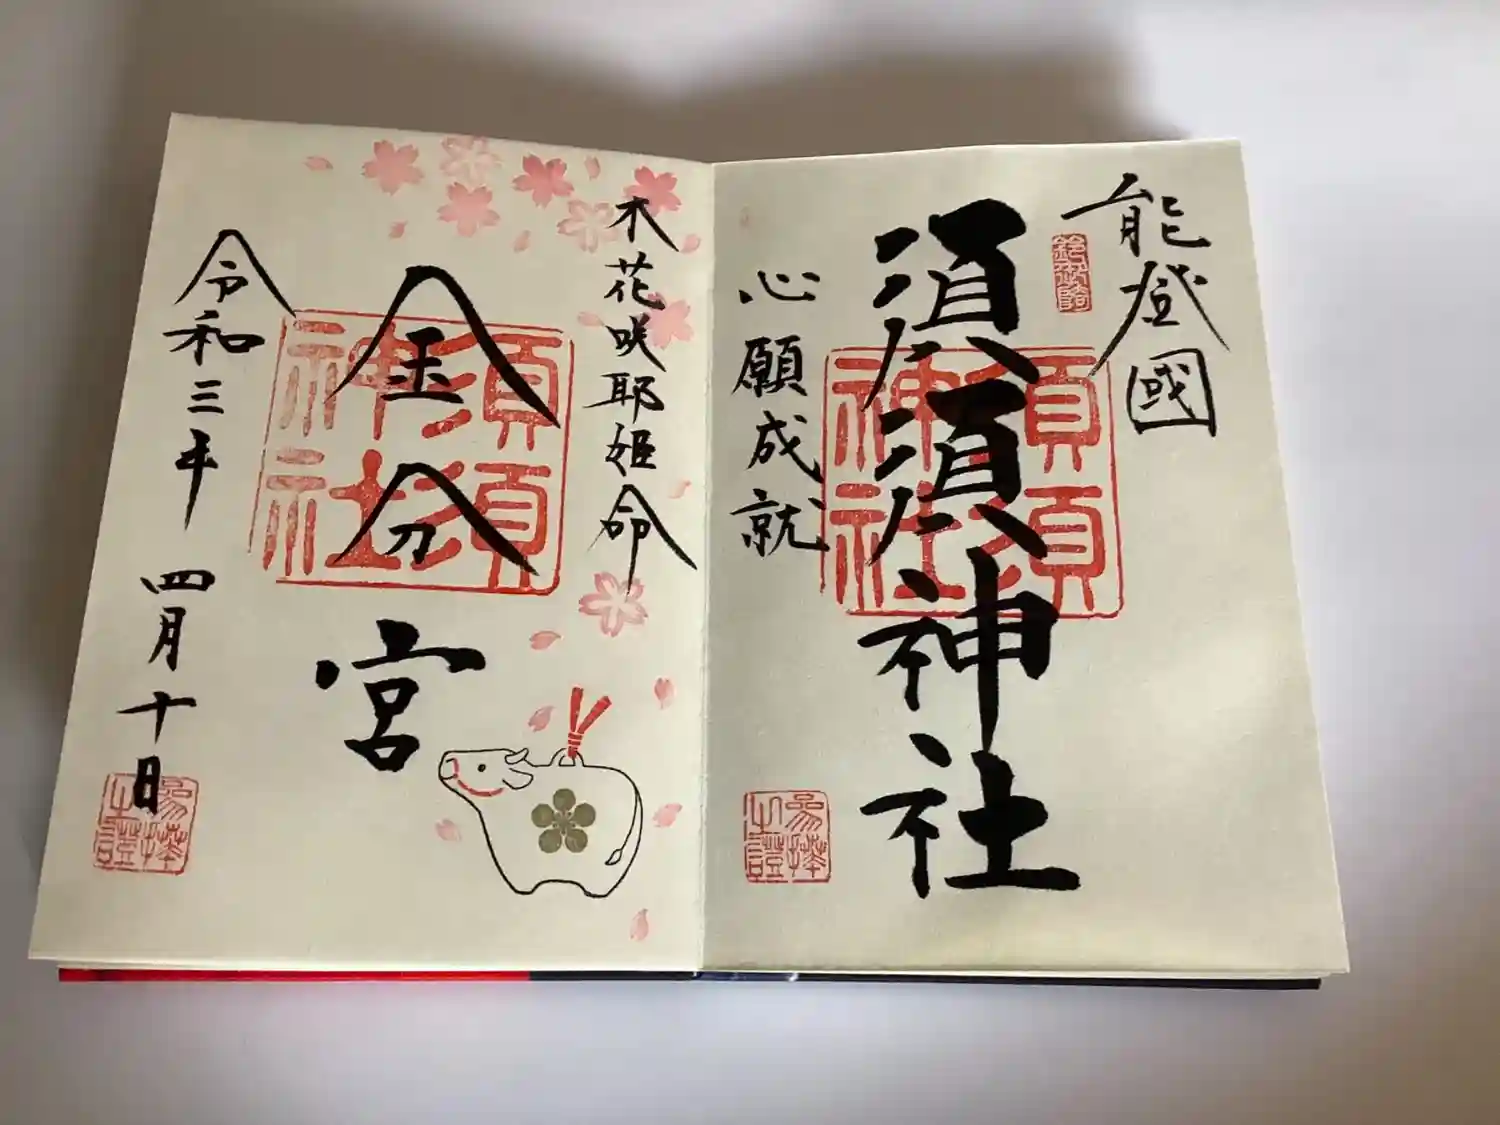 能登國
須須神社
心願成就
須須
神社
木花咲耶姫命
金分
宮
須須
神社
令和三年
四月十日